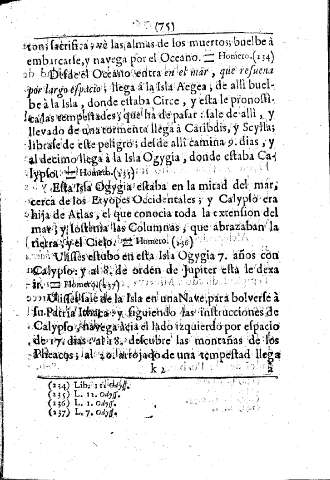 (75)
ton; sacrifica; vè las almas de los muertos; buelbe à
embarcarse, y navega por el Oceano. Homero. (234)
Desde el Oceano entra en el mar, que resuena
por largo espacio; llega à la Isla Aegea; de allì buel-
be à la Isla, donde estaba Circe, y esta le pronosti-
ca las tempestades, que ha de pasar: sale de allì, y
llevado de una tormenta llega à Caribdis, y Scylla;
librase de este peligro; desde allì camina 9. dias, y
al decimo llega à la Isla Ogygia, donde estaba Ca-
lypso. Homero. (235)
Esta Isla Ogygia estaba en la mitad del mar,
cerca de los Etyopes Occidentales; y Calypso era
hija de Atlas, el que conocia toda la extension del
mar; y sostenia las Columnas, que abrazaban la
tierra, y el Cielo. Homero. (236)
Ulisses estubo en esta Isla Ogygia 7. años con
Calypso: y al 8. de orden de Jupiter esta le dexa
ir. Homero. (237)
Ulisses sale de la Isla en una Nave, para bolverse à
su Patria Ithaca y siguiendo las instrucciones de
Calypso, navega àcia el lado izquierdo por espacio
de 17. dias: al 18. descubre las montañas de los
Pheacos; al 20. arrojado de una tempestad llega
k 2
(234) Lib. 11. Odyss.
(235) L. 12. Odyss.
(236) L. 1. Odyss.
(237) L. 7. Odyss.